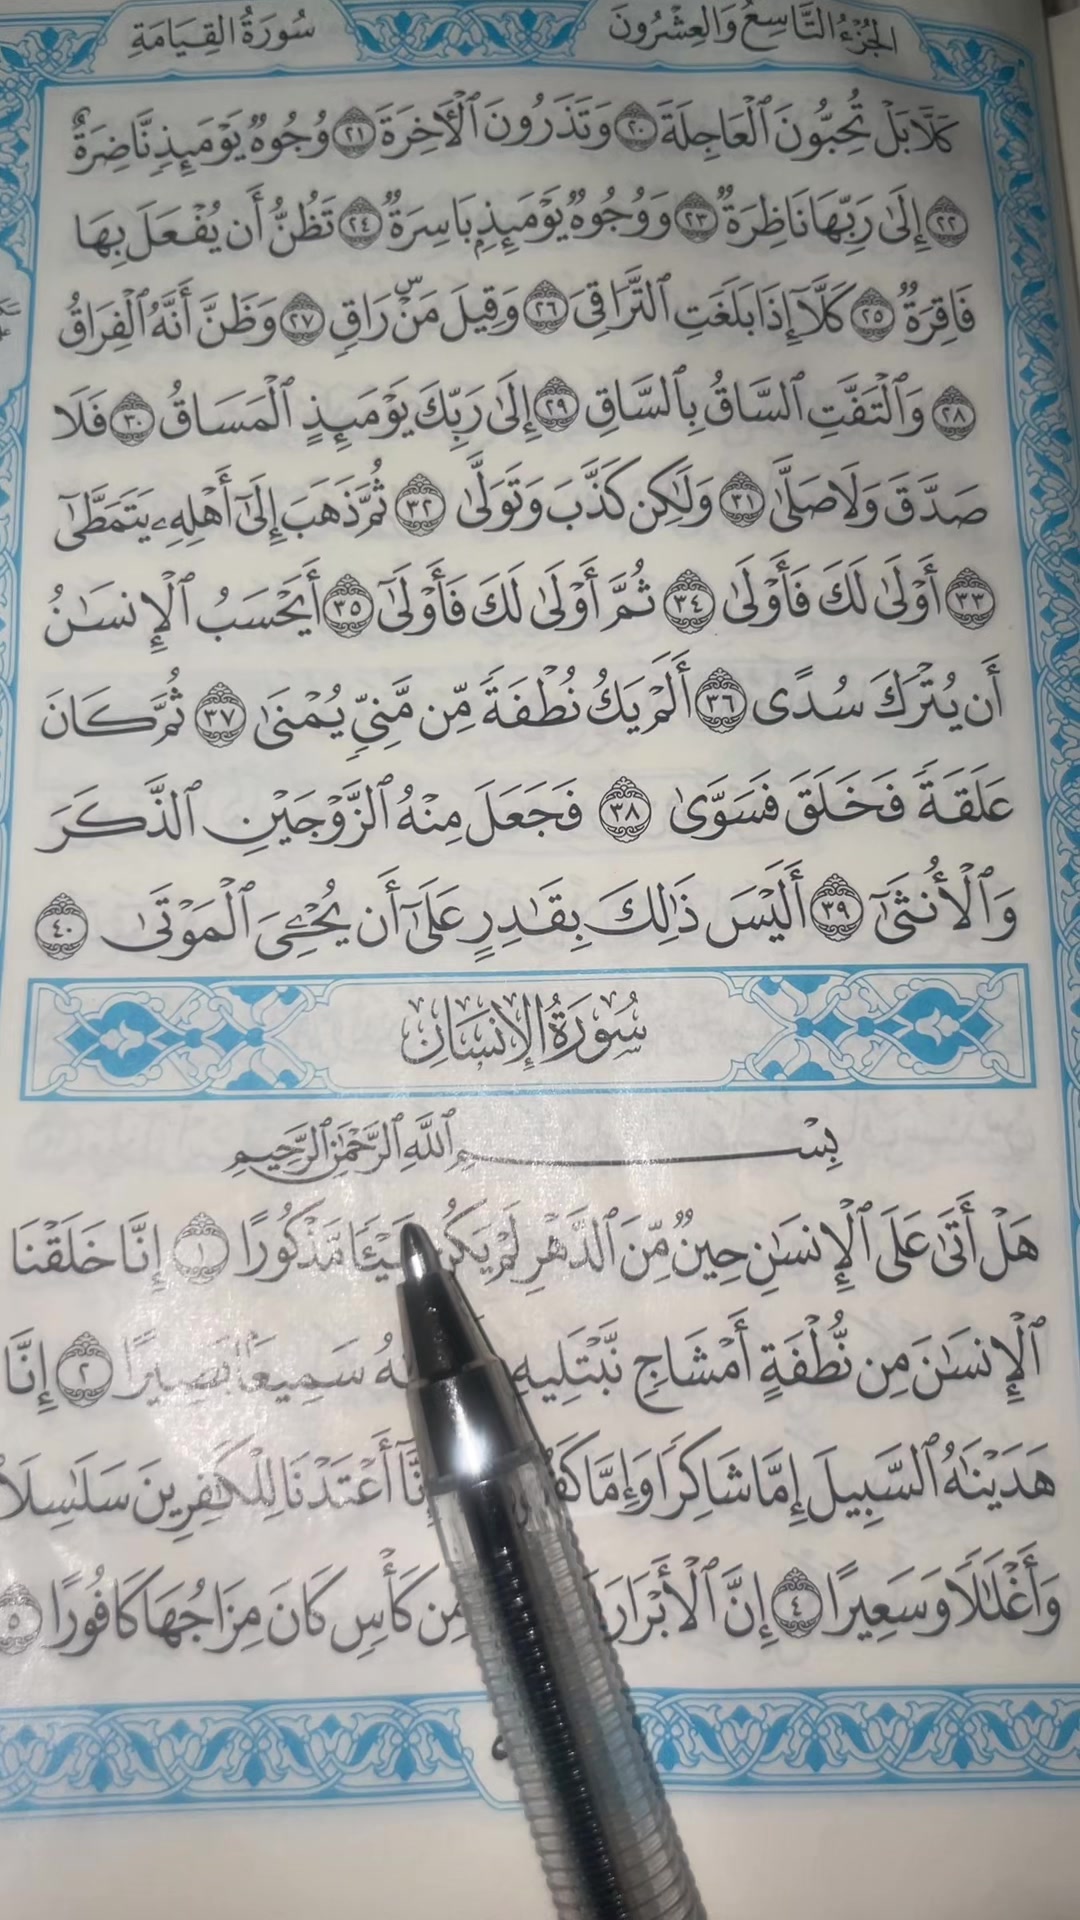 الجُزْءُ التَّاسِعُ وَالعِشْرُونَ سُورَةُ القِيَامَةِ
كَلَّا بَلْ تُحِبُّونَ ٱلْعَاجِلَةَ ٢٠ وَتَذَرُونَ ٱلْأَخِرَةَ ٢١ وُجُوهٌ يَوْمَئِذٍ نَّاضِرَةٌ
٢٢ إِلَىٰ رَبِّهَا نَاظِرَةٌ ٢٣ وَوُجُوهٌ يَوْمَئِذٍۭ بَاسِرَةٌ ٢٤ تَظُنُّ أَن يُفْعَلَ بِهَا
فَاقِرَةٌ ٢٥ كَلَّآ إِذَا بَلَغَتِ ٱلتَّرَاقِىَ ٢٦ وَقِيلَ مَنْۜ رَاقٍ ٢٧ وَظَنَّ أَنَّهُ ٱلْفِرَاقُ
٢٨ وَٱلْتَفَّتِ ٱلسَّاقُ بِٱلسَّاقِ ٢٩ إِلَىٰ رَبِّكَ يَوْمَئِذٍ ٱلْمَسَاقُ ٣٠ فَلَا
صَدَّقَ وَلَا صَلَّىٰ ٣١ وَلَٰكِن كَذَّبَ وَتَوَلَّىٰ ٣٢ ثُمَّ ذَهَبَ إِلَىٰٓ أَهْلِهِۦ يَتَمَطَّىٰٓ
٣٣ أَوْلَىٰ لَكَ فَأَوْلَىٰ ٣٤ ثُمَّ أَوْلَىٰ لَكَ فَأَوْلَىٰٓ ٣٥ أَيَحْسَبُ ٱلْإِنسَٰنُ
أَن يُتْرَكَ سُدًى ٣٦ أَلَمْ يَكُ نُطْفَةً مِّن مَّنِىٍّ يُمْنَىٰ ٣٧ ثُمَّ كَانَ
عَلَقَةً فَخَلَقَ فَسَوَّىٰ ٣٨ فَجَعَلَ مِنْهُ ٱلزَّوْجَيْنِ ٱلذَّكَرَ
وَٱلْأُنثَىٰٓ ٣٩ أَلَيْسَ ذَٰلِكَ بِقَٰدِرٍ عَلَىٰٓ أَن يُحْـِۧىَ ٱلْمَوْتَىٰ ٤٠
سُورَةُ الإِنسَانِ
بِسْمِ ٱللَّهِ ٱلرَّحْمَٰنِ ٱلرَّحِيمِ
هَلْ أَتَىٰ عَلَى ٱلْإِنسَٰنِ حِينٌ مِّنَ ٱلدَّهْرِ لَمْ يَكُن شَيْـًٔا مَّذْكُورًا ١ إِنَّا خَلَقْنَا
ٱلْإِنسَٰنَ مِن نُّطْفَةٍ أَمْشَاجٍ نَّبْتَلِيهِ سَمِيعًۢا بَصِيرًا ٢ إِنَّا
هَدَيْنَٰهُ ٱلسَّبِيلَ إِمَّا شَاكِرًا وَإِمَّا إِنَّآ أَعْتَدْنَا لِلْكَٰفِرِينَ سَلَٰسِلَا۟
وَأَغْلَٰلًا وَسَعِيرًا ٤ إِنَّ ٱلْأَبْرَارَ مِن كَأْسٍ كَانَ مِزَاجُهَا كَافُورًا ٥